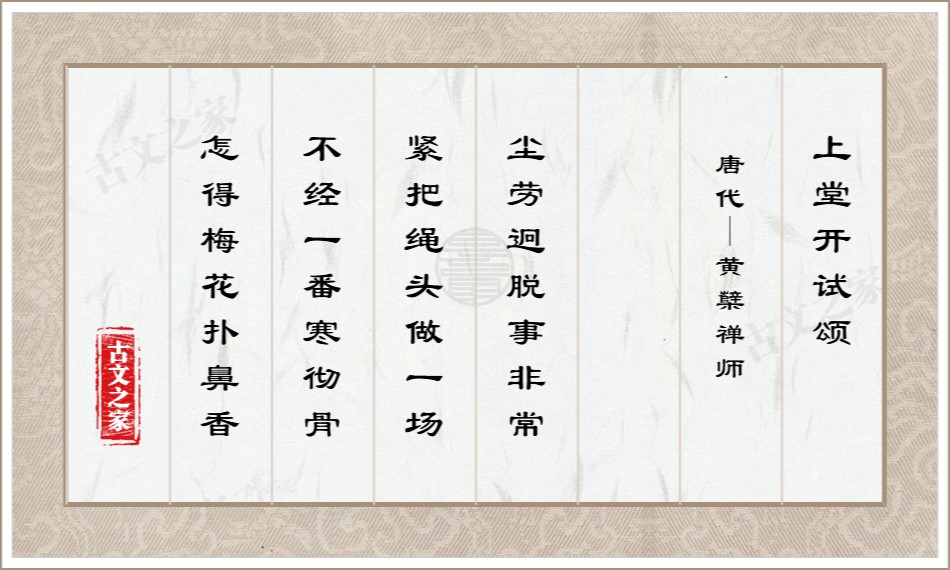 上堂开试颂
唐代—黄檗禅师
尘劳迥脱事非常
紧把绳头做一场
不经一番寒彻骨
怎得梅花扑鼻香
古文之家
古文之家
古文之家